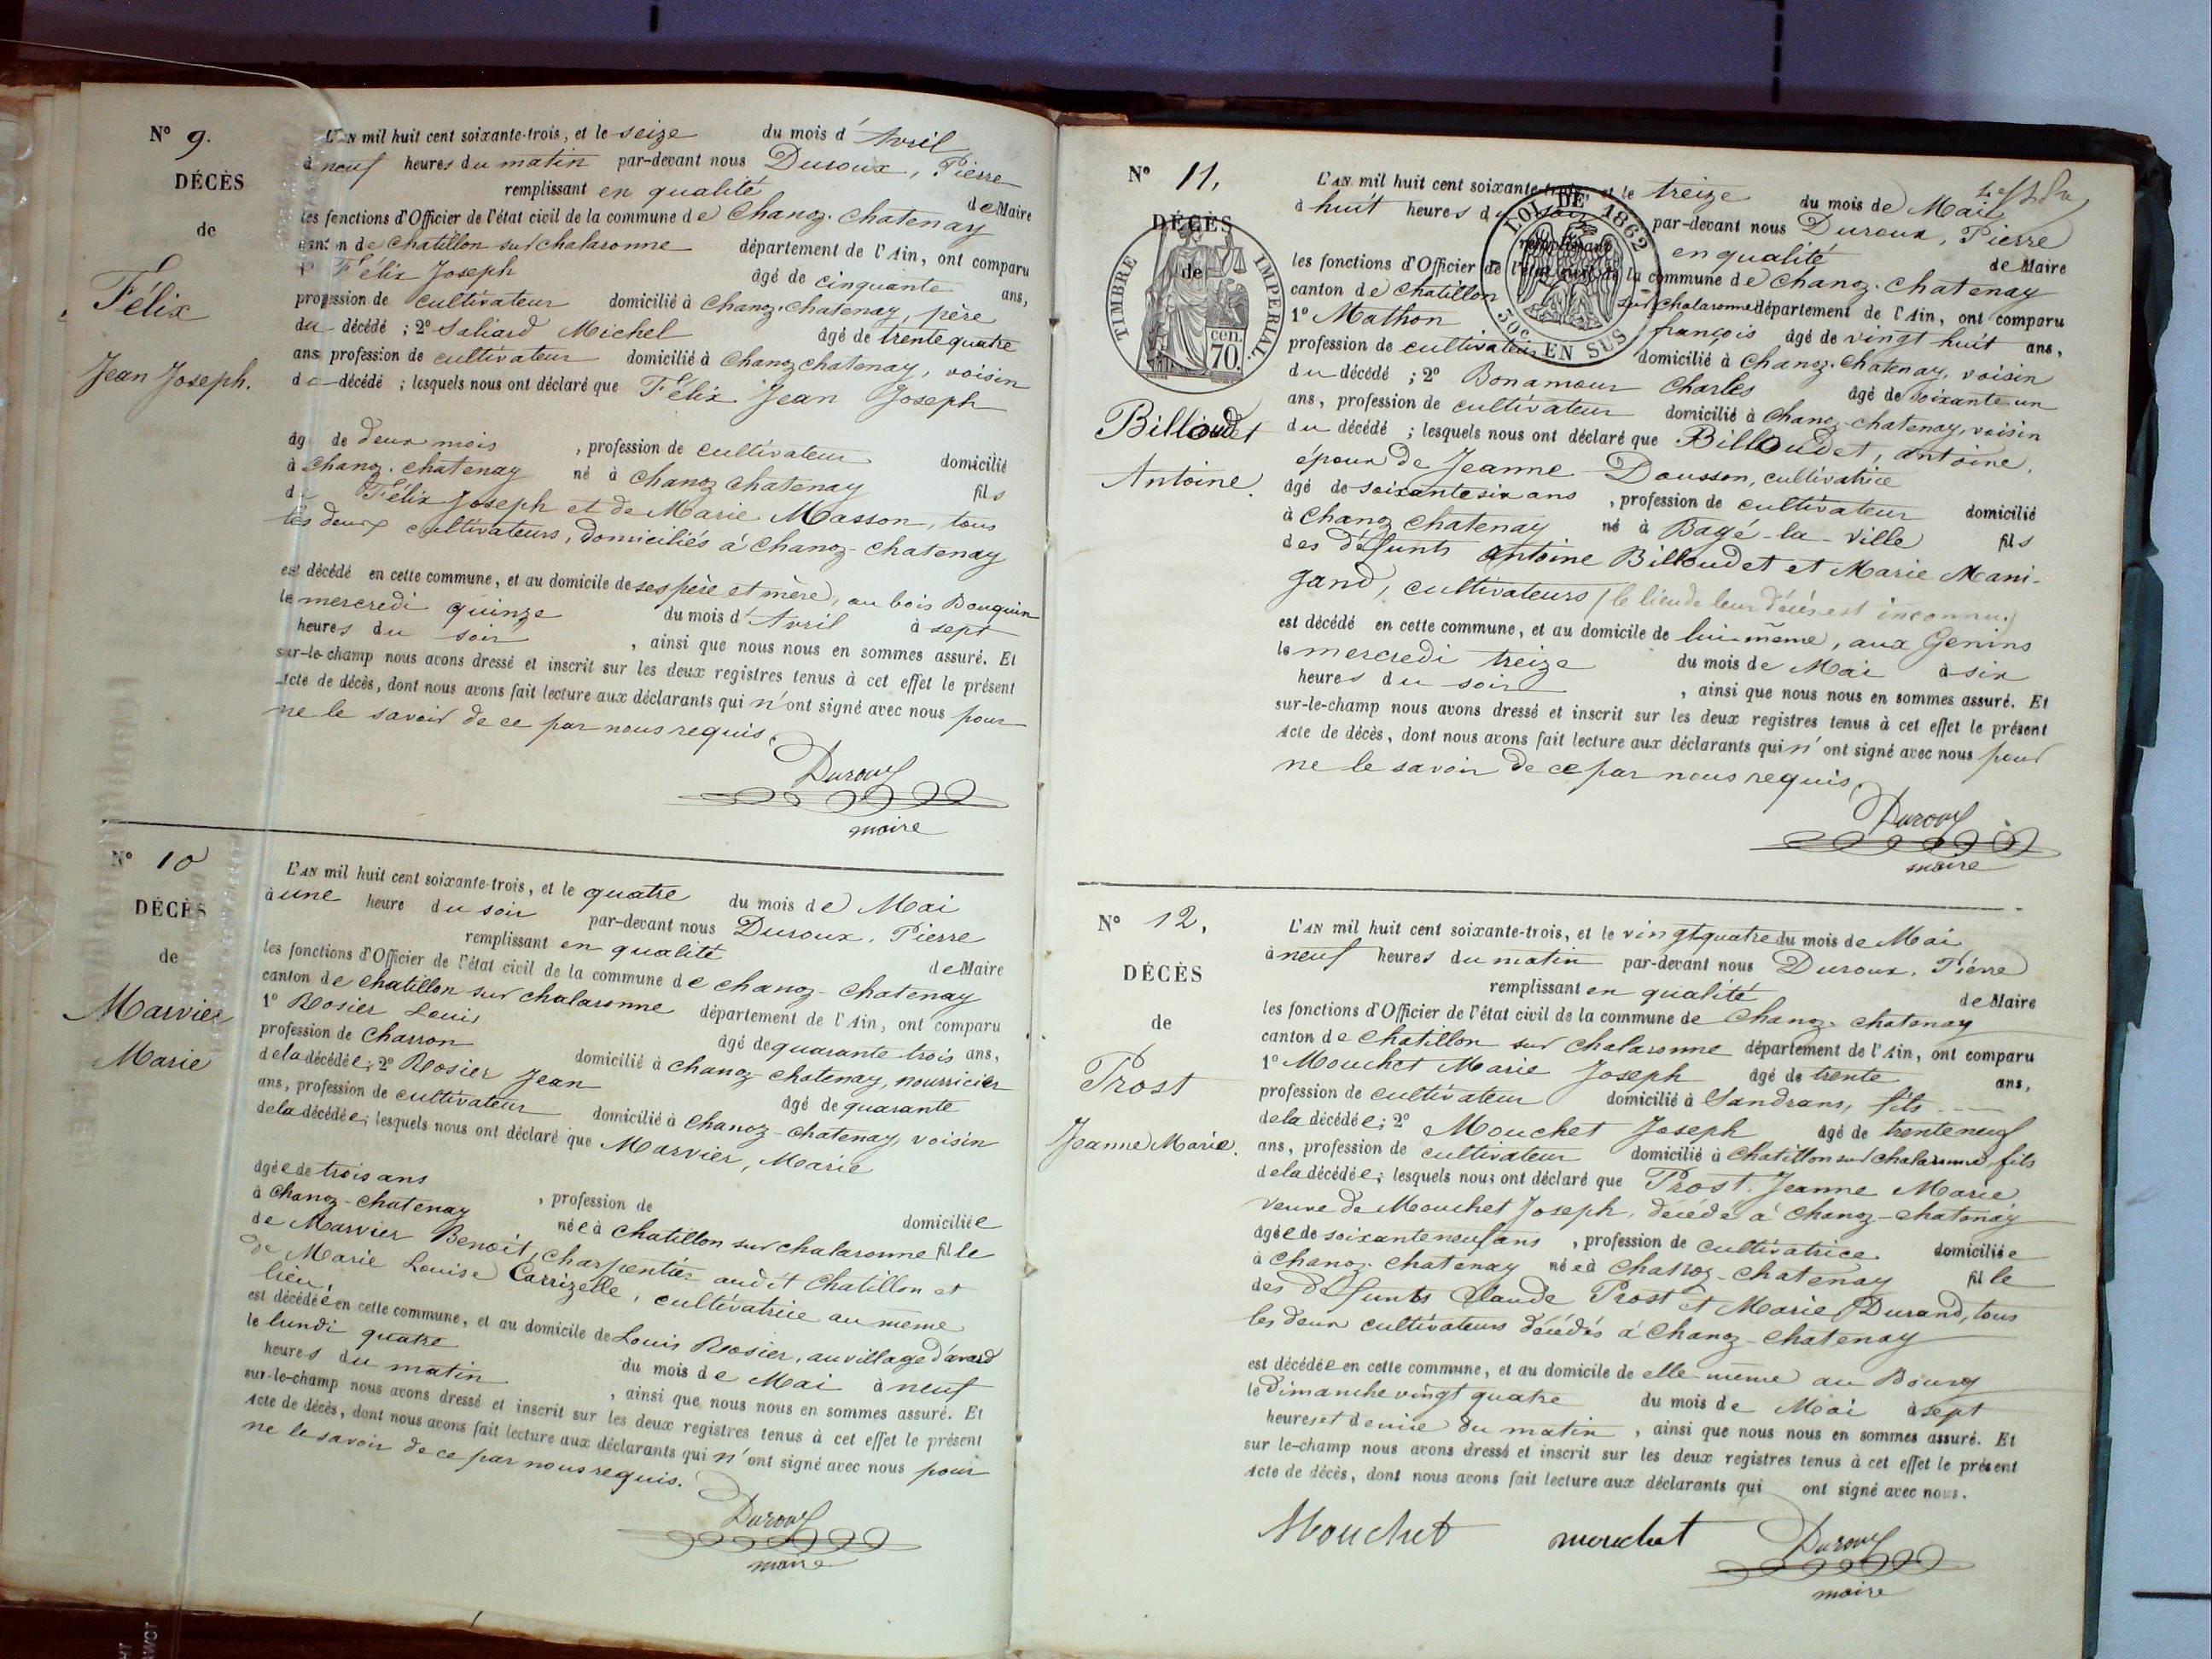 N° 9.
DÉCÈS
de
Félix
Jean Joseph.
L'AN mil huit cent soixante-trois, et le seize du mois d'Avril
à neuf heures du matin par-devant nous Duroux, Pierre
remplissant en qualité de Maire
les fonctions d'Officier de l'état civil de la commune de Chanoz-Chatenay
canton de Chatillon sur chalaronne département de l'Ain, ont comparu
1° Félix Joseph âgé de cinquante ans,
profession de cultivateur domicilié à Chanoz-Chatenay, père
du décédé ; 2° Saliard Michel âgé de trente quatre
ans profession de cultivateur domicilié à Chanoz chatenay, voisin
du décédé ; lesquels nous ont déclaré que Félix Jean Joseph
âgé de deux mois , profession de cultivateur domicilié
à Chanoz-chatenay né à Chanoz chatenay fils
de Félix Joseph et de Marie Masson, tous
les deux cultivateurs, domiciliés à Chanoz-Chatenay
est décédé en cette commune, et au domicile de ses père et mère, au bois Bouquin
le mercredi quinze du mois d'Avril à sept
heures du soir , ainsi que nous nous en sommes assuré. Et
sur-le-champ nous avons dressé et inscrit sur les deux registres tenus à cet effet le présent
Acte de décès, dont nous avons fait lecture aux déclarants qui n'ont signé avec nous pour
ne le savoir de ce par nous requis.
Duroux
maire
N° 10
DÉCÈS
de
Marvier
Marie
L'AN mil huit cent soixante-trois, et le quatre du mois de Mai
à une heure du soir par-devant nous Duroux, Pierre
remplissant en qualité de Maire
les fonctions d'Officier de l'état civil de la commune de chanoz-chatenay
canton de chatillon sur chalaronne département de l'Ain, ont comparu
1° Rosier Louis âgé de quarante trois ans,
profession de charron domicilié à chanoz-chatenay, nourricier
de la décédée ; 2° Rosier Jean âgé de quarante
ans, profession de cultivateur domicilié à Chanoz-chatenay, voisin
de la décédée ; lesquels nous ont déclaré que Marvier, Marie
âgée de trois ans , profession de domiciliée
à Chanoz-chatenay née à Chatillon sur chalaronne fille
de Marvier Benoit, charpentier audit Chatillon et
de Marie Louise Carrizelle, cultivatrice au même
lieu.
est décédée en cette commune, et au domicile de Louis Rosier, au village d'avard
le lundi quatre du mois de Mai à neuf
heures du matin , ainsi que nous nous en sommes assuré. Et
sur-le-champ nous avons dressé et inscrit sur les deux registres tenus à cet effet le présent
Acte de décès, dont nous avons fait lecture aux déclarants qui n'ont signé avec nous pour
ne le savoir de ce par nous requis.
Duroux
maire
N° 11,
DÉCÈS
de
TIMBRE IMPERIAL
cen. 70.
Billoudet
Antoine.
LOI DE 1862
50c EN SUS
L'AN mil huit cent soixante-trois, et le treize du mois de Mai
à huit heures du soir par-devant nous Duroux, Pierre
remplissant en qualité de Maire
les fonctions d'Officier de l'état civil de la commune de Chanoz-Chatenay
canton de Chatillon sur chalaronne département de l'Ain, ont comparu
1° Mathon françois âgé de vingt huit ans,
profession de cultivateur domicilié à Chanoz-Chatenay, voisin
du décédé ; 2° Bonamour Charles âgé de soixante un
ans, profession de cultivateur domicilié à Chanoz-chatenay, voisin
du décédé ; lesquels nous ont déclaré que Billoudet, antoine,
époux de Jeanne Dousson, cultivatrice
âgé de soixante six ans , profession de cultivateur domicilié
à Chanoz Chatenay né à Bagé-la-Ville fils
des défunts Antoine Billoudet et Marie Mani-
gand, cultivateurs (le lieu de leur décès est inconnu.)
est décédé en cette commune, et au domicile de lui-même, aux Genins
le mercredi treize du mois de Mai à six
heures du soir , ainsi que nous nous en sommes assuré. Et
sur-le-champ nous avons dressé et inscrit sur les deux registres tenus à cet effet le présent
Acte de décès, dont nous avons fait lecture aux déclarants qui n'ont signé avec nous pour
ne le savoir de ce par nous requis.
Duroux
maire
N° 12,
DÉCÈS
de
Prost
Jeanne Marie.
L'AN mil huit cent soixante-trois, et le vingt quatre du mois de Mai
à neuf heures du matin par-devant nous Duroux, Pierre
remplissant en qualité de Maire
les fonctions d'Officier de l'état civil de la commune de Chanoz-chatenay
canton de Chatillon sur Chalaronne département de l'Ain, ont comparu
1° Mouchet Marie Joseph âgé de trente ans,
profession de cultivateur domicilié à Sandrans, fils
de la décédée ; 2° Mouchet Joseph âgé de trente neuf
ans, profession de cultivateur domicilié à Chatillon sur chalaronne, fils
de la décédée ; lesquels nous ont déclaré que Prost Jeanne Marie
veuve de Mouchet Joseph, décédé à Chanoz-chatenay
âgée de soixante neuf ans , profession de cultivatrice domiciliée
à chanoz-chatenay née à Chanoz-chatenay fille
des défunts Claude Prost et Marie Durand, tous
les deux cultivateurs décédés à Chanoz-chatenay
est décédée en cette commune, et au domicile de elle-même au Bourg
le Dimanche vingt quatre du mois de Mai à sept
heures et demie du matin , ainsi que nous nous en sommes assuré. Et
sur le-champ nous avons dressé et inscrit sur les deux registres tenus à cet effet le présent
Acte de décès, dont nous avons fait lecture aux déclarants qui ont signé avec nous.
Mouchet mouchet Duroux
maire